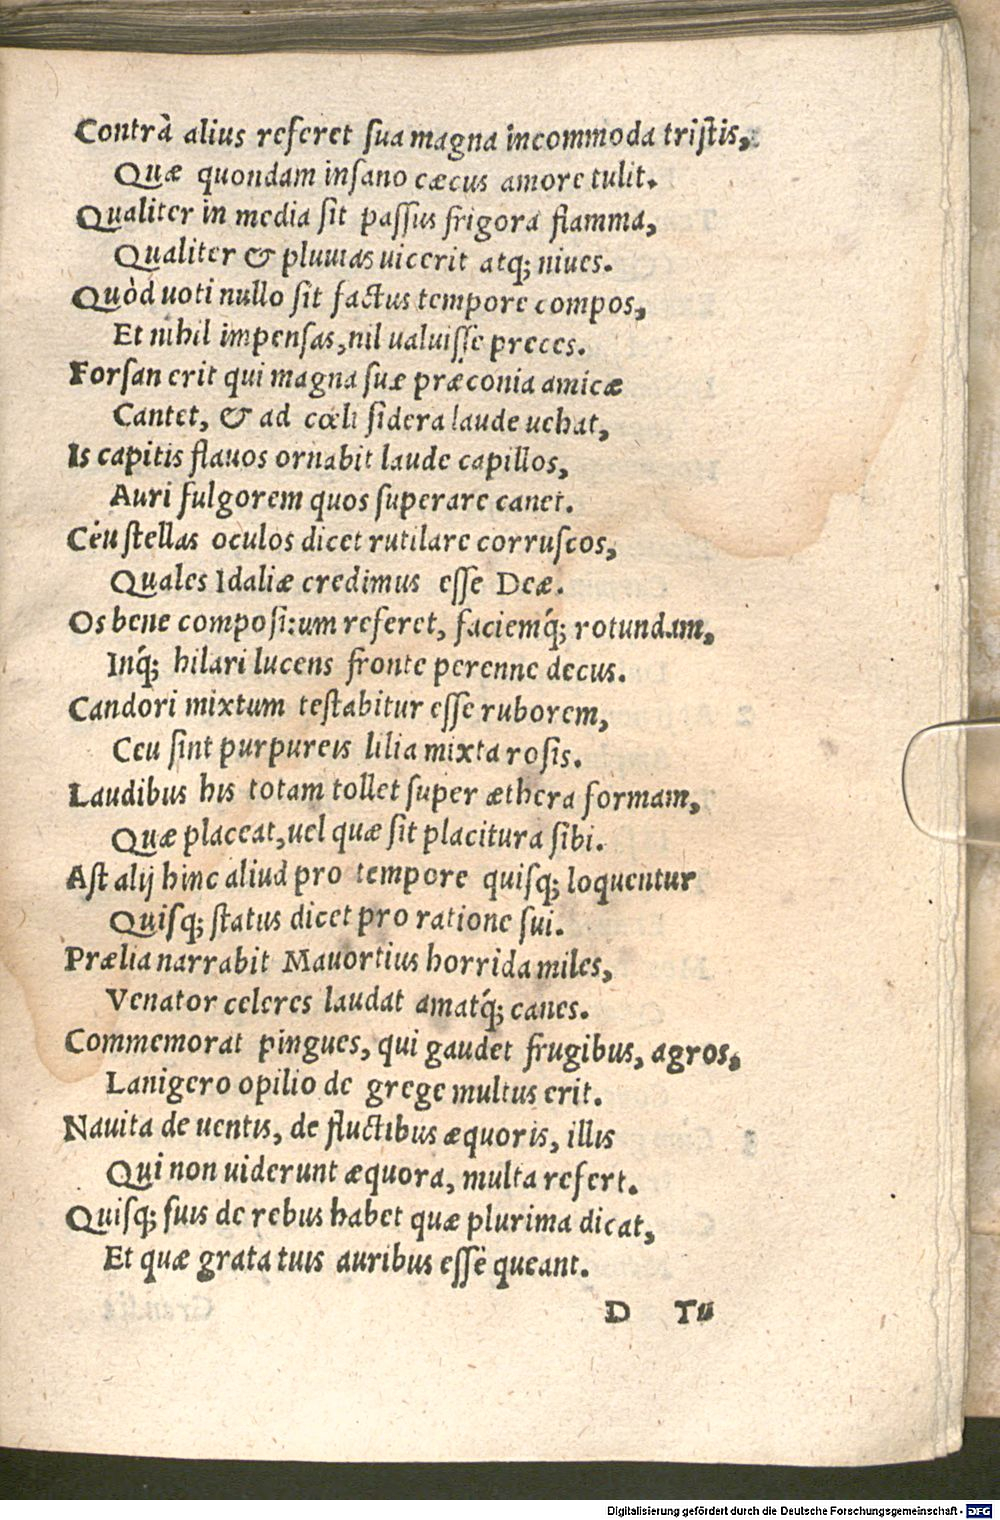 Contrà alius referet sua magna incommoda tristis,
Quæ quondam insano cæcus amore tulit.
Qualiter in media sit passus frigora flamma,
Qualiter & pluuias uicerit atq; niues.
Quòd uoti nullo sit factus tempore compos,
Et nihil impensas, nil ualuisse preces.
Forsan erit qui magna suæ præconia amicæ
Cantet, & ad cœli sidera laude uehat,
Is capitis flauos ornabit laude capillos,
Auri fulgorem quos superare canet.
Ceu stellas oculos dicet rutilare corruscos,
Quales Idaliæ credimus esse Deæ.
Os bene compositum referet, faciemq́; rotundam,
Inq́; hilari lucens fronte perenne decus.
Candori mixtum testabitur esse ruborem,
Ceu sint purpureis lilia mixta rosis.
Laudibus his totam tollet super æthera formam,
Quæ placeat, uel quæ sit placitura sibi.
Ast alij hinc aliud pro tempore quisq; loquentur
Quisq; status dicet pro ratione sui.
Prælia narrabit Mauortius horrida miles,
Venator celeres laudat amatq́; canes.
Commemorat pingues, qui gaudet frugibus, agros,
Lanigero opilio de grege multus erit.
Nauita de uentis, de fluctibus æquoris, illis
Qui non uiderunt æquora, multa refert.
Quisq; suis de rebus habet quæ plurima dicat,
Et quæ grata tuis auribus esse queant.
D Tu
Digitalisierung gefördert durch die Deutsche Forschungsgemeinschaft - DFG